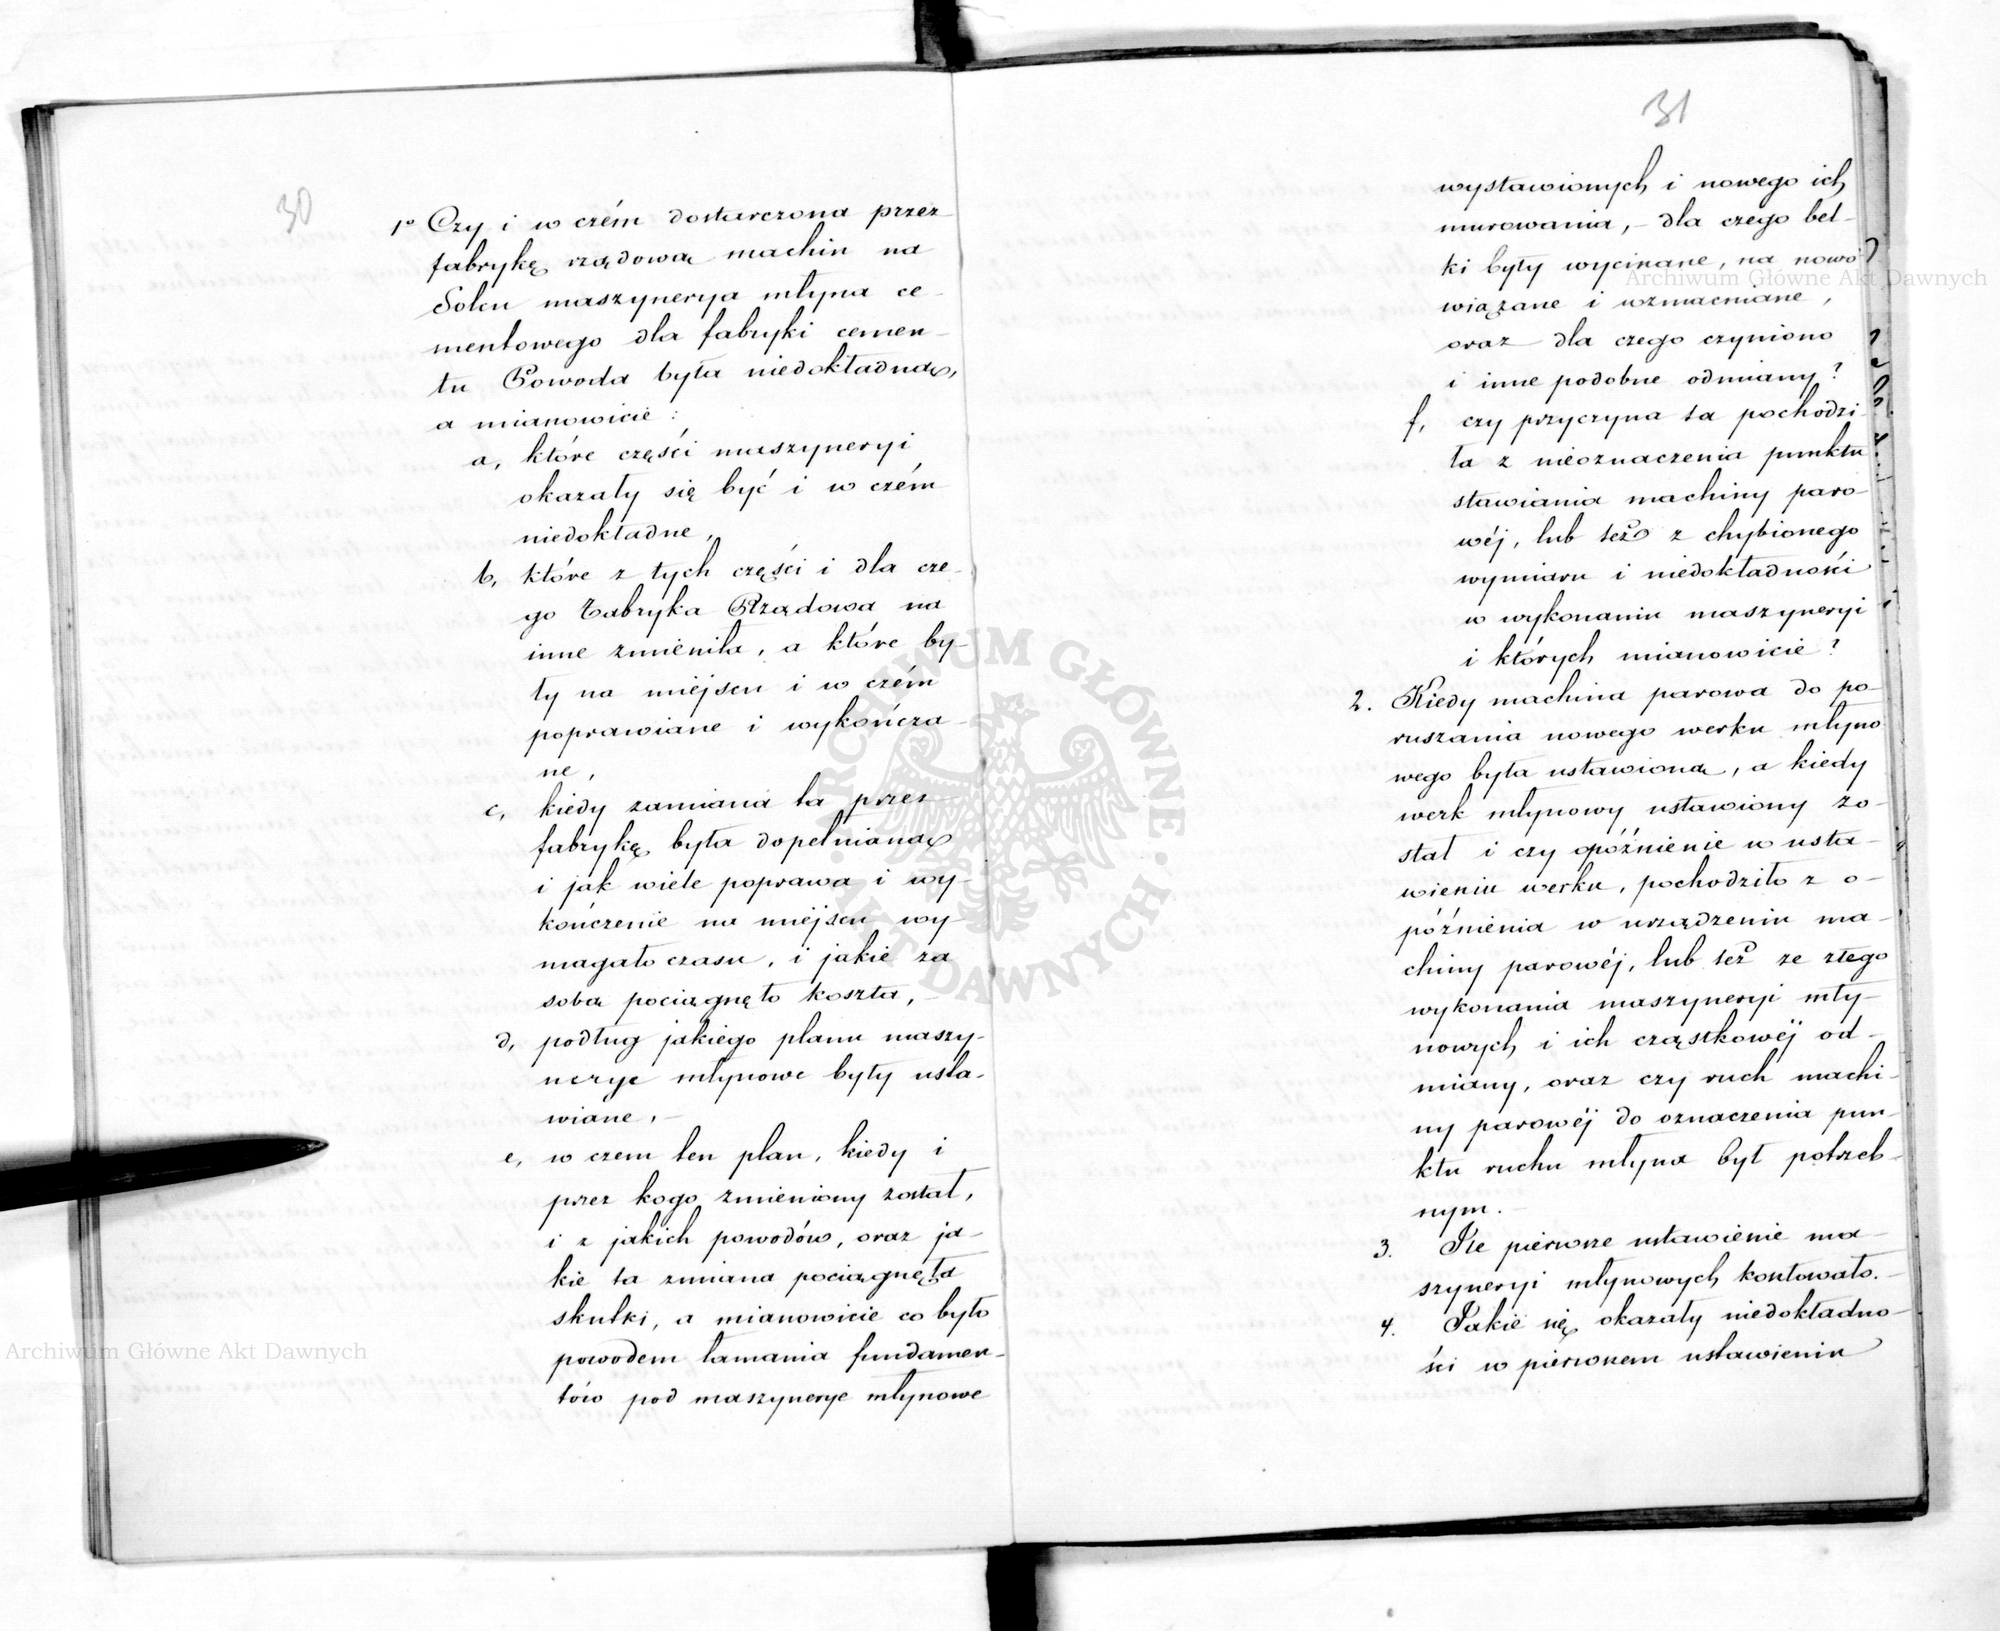 30
1º Czy i w czém dostarczona przez
fabrykę rządową machin na
Solcu maszynerya młyna ce-
mentowego dla fabryki cemen-
tu Powoda była niedokładną,
a mianowicie:
a, które części maszyneryi
okazały się być i w czém
niedokładne,
b, które z tych części i dla cze-
go Fabryka Rządowa na
inne zmieniła, a które by-
ły na miejscu i w czém
poprawiane i wykończa-
ne,
c, kiedy zamiana ta przez
fabrykę była dopełnianą
i jak wiele poprawa i wy-
kończenie na miejscu wy-
magało czasu, i jakie za
sobą pociągnęło koszta, -
d, podług jakiego planu maszy-
nerye młynowe były usta-
wiane, -
e, w czem ten plan, kiedy i
przez kogo zmieniony został,
i z jakich powodów, oraz ja-
kie ta zmiana pociągnęła
skutki, a mianowicie co było
powodem łamania fundamen-
tów pod maszynerye młynowe
31
wystawionych i nowego ich
murowania, - dla czego bel-
ki były wycinane, na nowo
wiązane i wzmacniane,
oraz dla czego czyniono
i inne podobne odmiany?
f, czy przyczyna ta pochodzi-
ła z nieoznaczenia punktu
stawiania machiny paro-
wéj, lub też z chybionego
wymiaru i niedokładności
w wykonaniu maszyneryi
i których mianowicie?
2. Kiedy machina parowa do po-
ruszania nowego werku młyno
wego była ustawioną, a kiedy
werk młynowy ustawiony zo-
stał i czy opóźnienie w usta-
wieniu werku, pochodziło z o-
późnienia w urządzeniu ma-
chiny parowéj, lub też ze złego
wykonania maszyneryi mły-
nowych i ich cząstkowéj od-
miany, oraz czy ruch machi-
ny parowéj do oznaczenia pun-
ktu ruchu młyna był potrzeb-
nym.
3. Ile pierwsze ustawienie ma-
szyneryi młynowych kosztowało. -
4. Jakie się okazały niedokładno-
ści w pierwszem ustawieniu
Archiwum Główne Akt Dawnych
Archiwum Główne Akt Dawnych
ARCHIWUM GŁÓWNE · AKT DAWNYCH ·